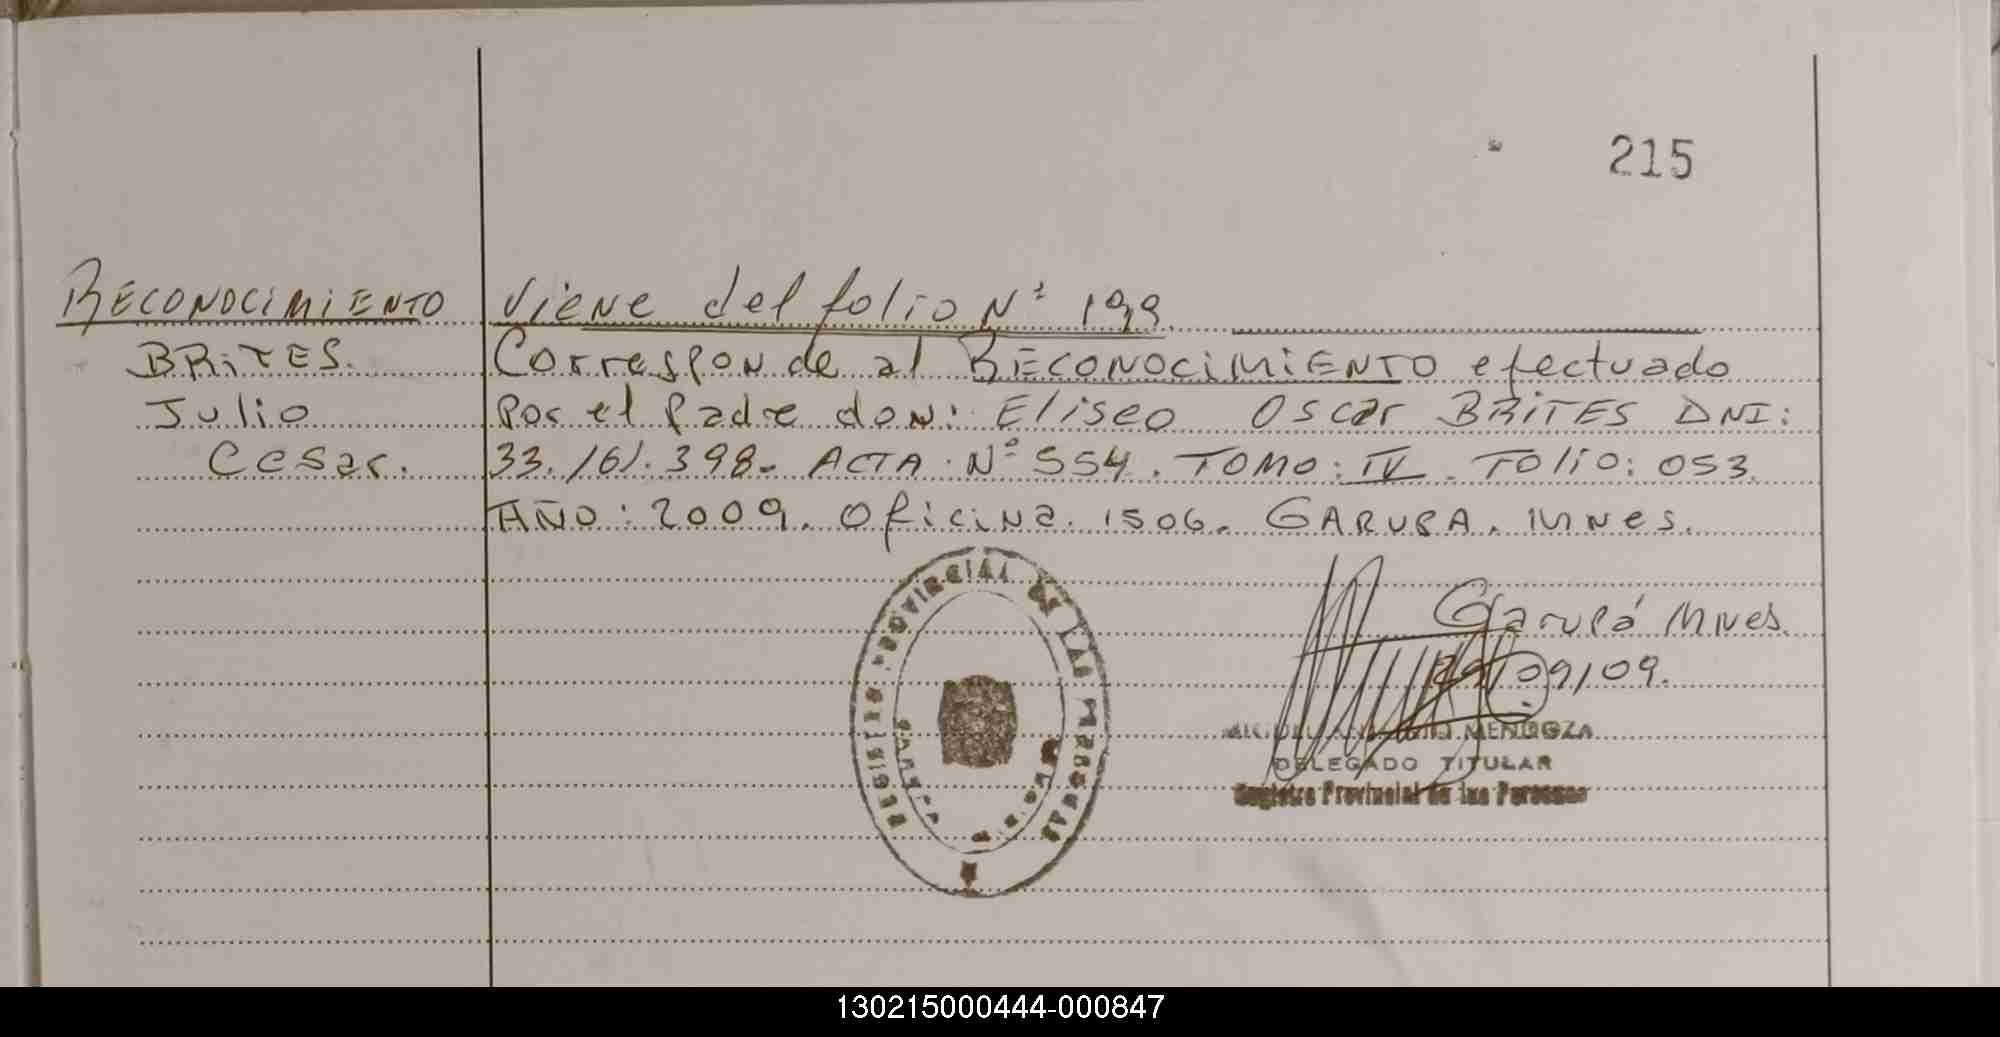 215
RECONOCIMIENTO Viene del folio Nº 199.
BRiTES. Corresponde al RECONOCIMIENTO efectuado
Julio por el padre don: Eliseo Oscar BRiTES DNI:
Cesar. 33.161.398. ACTA Nº 554. TOMO: IV. Folio: 053.
AÑO: 2009. Oficina 1506. GARUPA. Mnes.
REGISTRO PROVINCIAL DE LAS PERSONAS
Garupá Mnes.
/09/09.
MENDOZA
DELEGADO TITULAR
Registro Provincial de las Personas
130215000444-000847